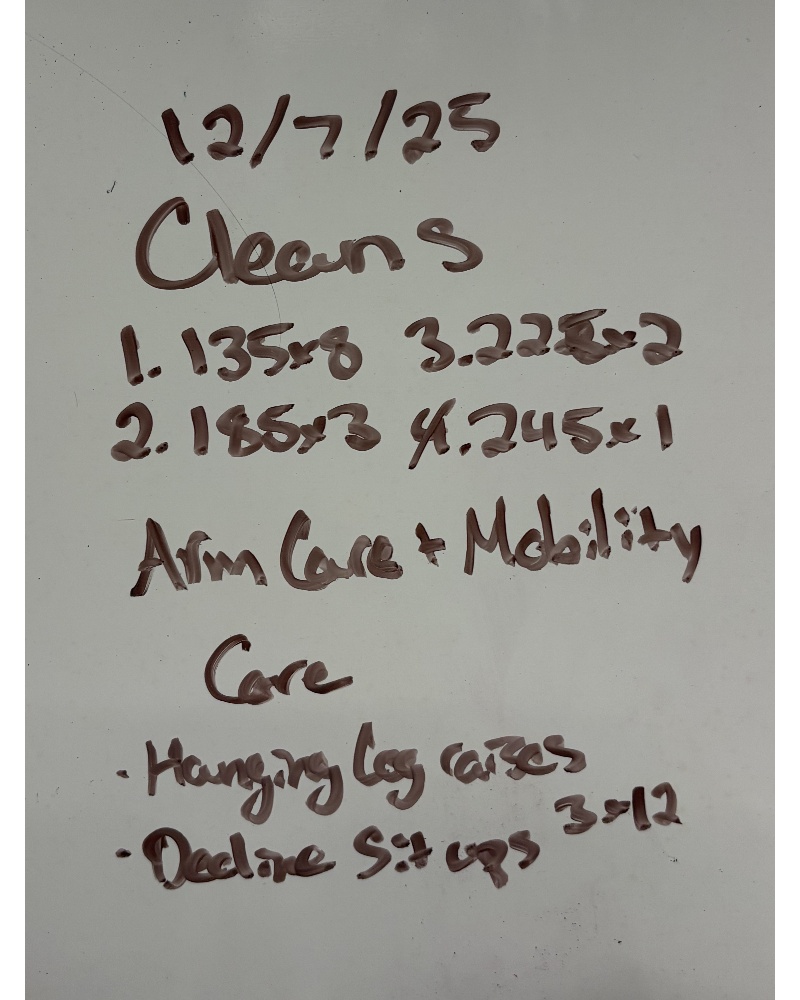 12/7/25
Cleans
1. 135x8 3. 225x2
2. 185x3 4. 245x1
Arm Care + Mobility
Core
· Hanging Leg raises
· Decline Sit ups 3x12